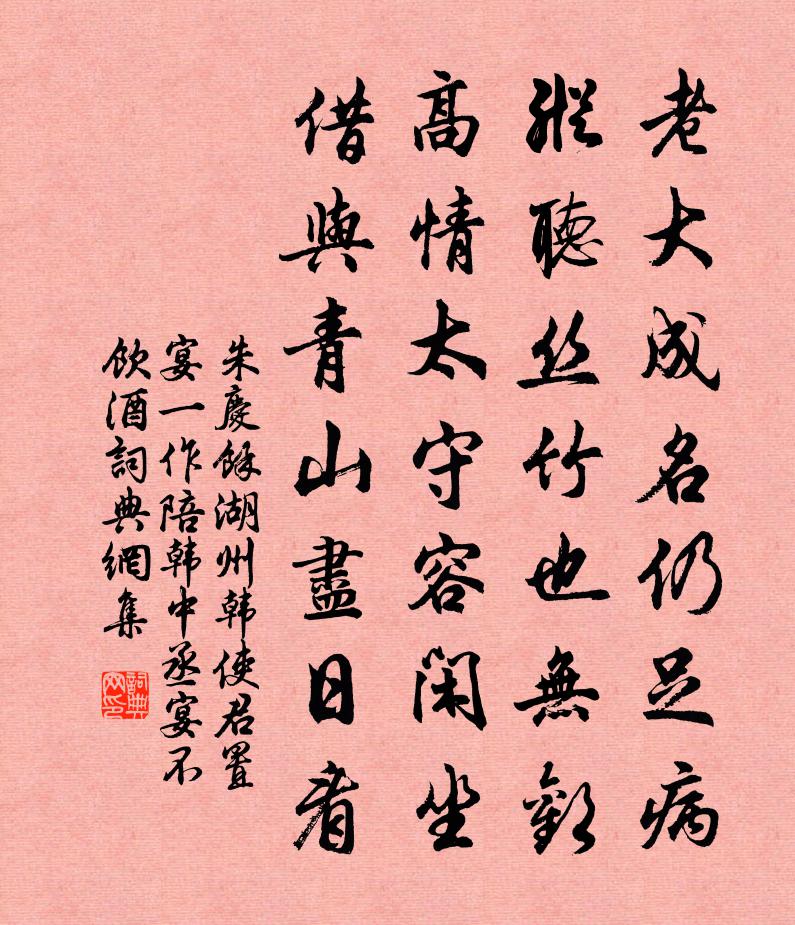 老大成名仍足病
縱聽丝竹也無歡
高情太守容闲坐
借與青山盡日看
朱慶餘湖州韩使君置
宴一作陪韩中丞宴不
飲酒詞典網集
詞典网印